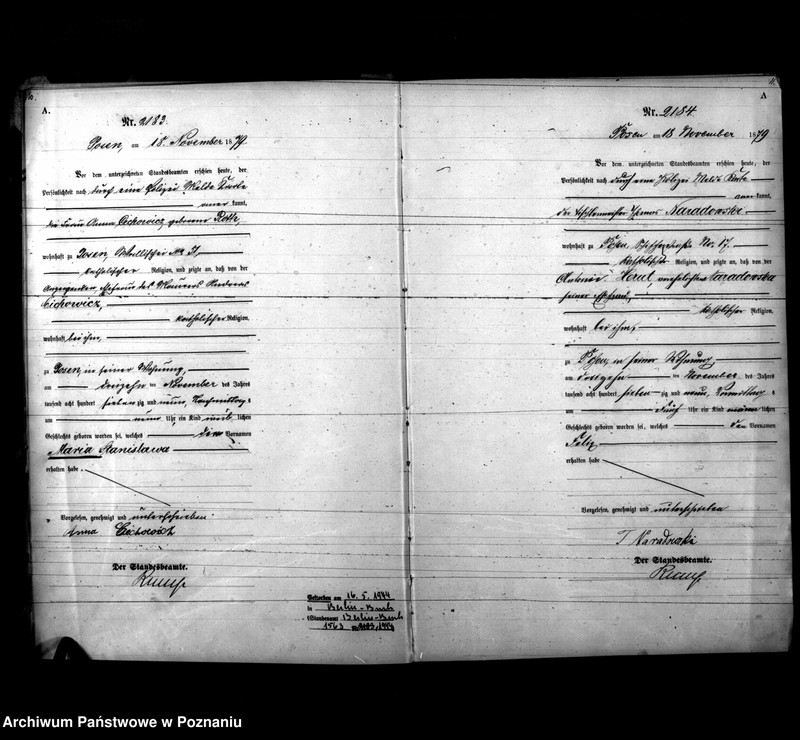 A.
Nr. 2183.
Posen, am 18. November 1879.
Vor dem unterzeichneten Standesbeamten erschien heute, der
Persönlichkeit nach durch eine Polizei Melde Karte
aner kannt,
die Frau Anna Cichowicz geborene
wohnhaft zu Posen,
katholischer Religion, und zeigte an, daß von der
Anzeigenden, Ehefrau des Maurers
Cichowicz,
katholischer Religion,
wohnhaft bei ihm,
zu Posen, in seiner Wohnung,
am dreizehn ten November des Jahres
tausend acht hundert siebenzig und neun, Nachmittags
um neun Uhr ein Kind weib lichen
Geschlechts geboren worden sei, welches die Vornamen
Maria Stanislawa
erhalten habe.
Vorgelesen, genehmigt und unterschrieben
Anna
Der Standesbeamte.
Gestorben am 16. 5. 1944
in Berlin-Buch
(Standesamt Berlin-Buch
1563
11.
A
Nr. 2184.
Posen am 18 November 1879
Vor dem unterzeichneten Standesbeamten erschien heute, der
Persönlichkeit nach durch eine Polizei Melde Karte
aner kannt,
der Naradowski
wohnhaft zu Posen, No. 17,
katholischer Religion, und zeigte an, daß von der
Antonie verehelichten Naradowska
seiner Ehefrau,
katholischer Religion,
wohnhaft bei ihm,
zu Posen, in seiner Wohnung,
am ten November des Jahres
tausend acht hundert siebenzig und neun, Vormittags
um Uhr ein Kind männ lichen
Geschlechts geboren worden sei, welches den Vornamen
Felix
erhalten habe
Vorgelesen, genehmigt und unterschrieben
T Naradowski
Der Standesbeamte.
Archiwum Państwowe w Poznaniu